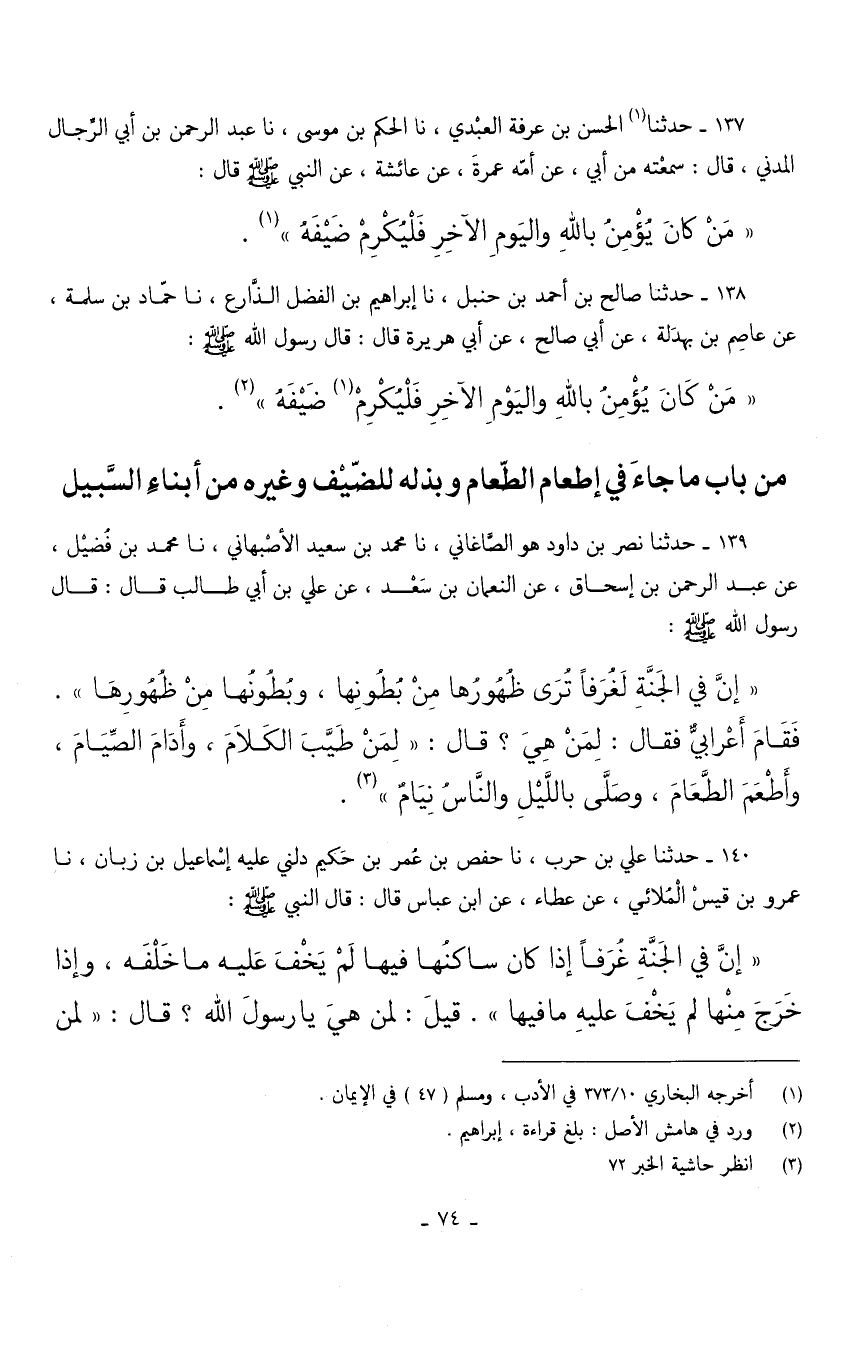 ١٣٧ ـ حدثنا(١) الحسن بن عرفة العبْدي ، نا الحكم بن موسى ، نا عبد الرحمن بن أبي الرِّجال
المدني ، قال : سمعْته من أبي ، عن أمّه عمرةَ ، عن عائشة ، عن النبي ﷺ قال :
« مَنْ كانَ يُؤْمِنُ باللهِ واليَومِ الآخرِ فَلْيُكْرِمْ ضَيْفَهُ »(١) .
١٣٨ ـ حدثنا صالح بن أحمد بن حنبل ، نا إبراهيم بن الفضل الذَّارع ، نا حمّاد بن سلمة ،
عن عاصِم بن بهدَلة ، عن أبي صالح ، عن أبي هريرة قال : قال رسول الله ﷺ :
« مَنْ كَانَ يُؤْمِنُ باللهِ واليَوْمِ الآخرِ فَلْيُكْرِمْ(١) ضَيْفَهُ »(٢) .
من باب ما جاءَ في إطعام الطّعام وبذله للضّيْف وغيره من أبناءِ السَّبيل
١٣٩ ـ حدثنا نصر بن داود هو الصَّاغاني ، نا محمد بن سعيد الأصْبهاني ، نا محمد بن فُضيْل ،
عن عبد الرحمن بن إسحاق ، عن النعمان بن سَعْد ، عن علي بن أبي طالب قال : قال
رسول الله ﷺ :
« إنَّ في الجَنَّةِ لَغُرَفاً تُرَى ظُهُورُها مِنْ بُطُونِها ، وبُطُونُها مِنْ ظُهُورِهَا » .
فَقَامَ أَعْرابيٌّ فقال : لِمَنْ هِيَ ؟ قال : « لِمَنْ طَيَّبَ الكَلاَمَ ، وأَدَامَ الصِّيَامَ ،
وأَطْعَمَ الطَّعَامَ ، وصَلَّى باللَّيْلِ والنَّاسُ نِيَامٌ »(٣) .
١٤٠ ـ حدثنا علي بن حرب ، نا حفص بن عُمر بن حَكيم دلني عليه إسْماعيل بن زبان ، نا
عمرو بن قيسْ الْمُلائي ، عن عطاء ، عن ابن عباس قال : قال النبي ﷺ :
« إنَّ في الجَنَّةِ غُرَفاً إذا كان ساكنُها فيها لَمْ يَخْفَ عَليه ما خَلْفَه ، وإذا
خَرَجَ مِنْها لم يَخْفَ عليهِ مافيها » . قيلَ : لمن هيَ يارسولَ الله ؟ قال : « لمن
(١) أخرجه البخاري ٣٧٣/١٠ في الأدب ، ومسلم ( ٤٧ ) في الإيمان .
(٢) ورد في هامش الأصل : بلغ قراءة ، إبراهيم .
(٣) انظر حاشية الخبر ٧٢
ـ ٧٤ ـ